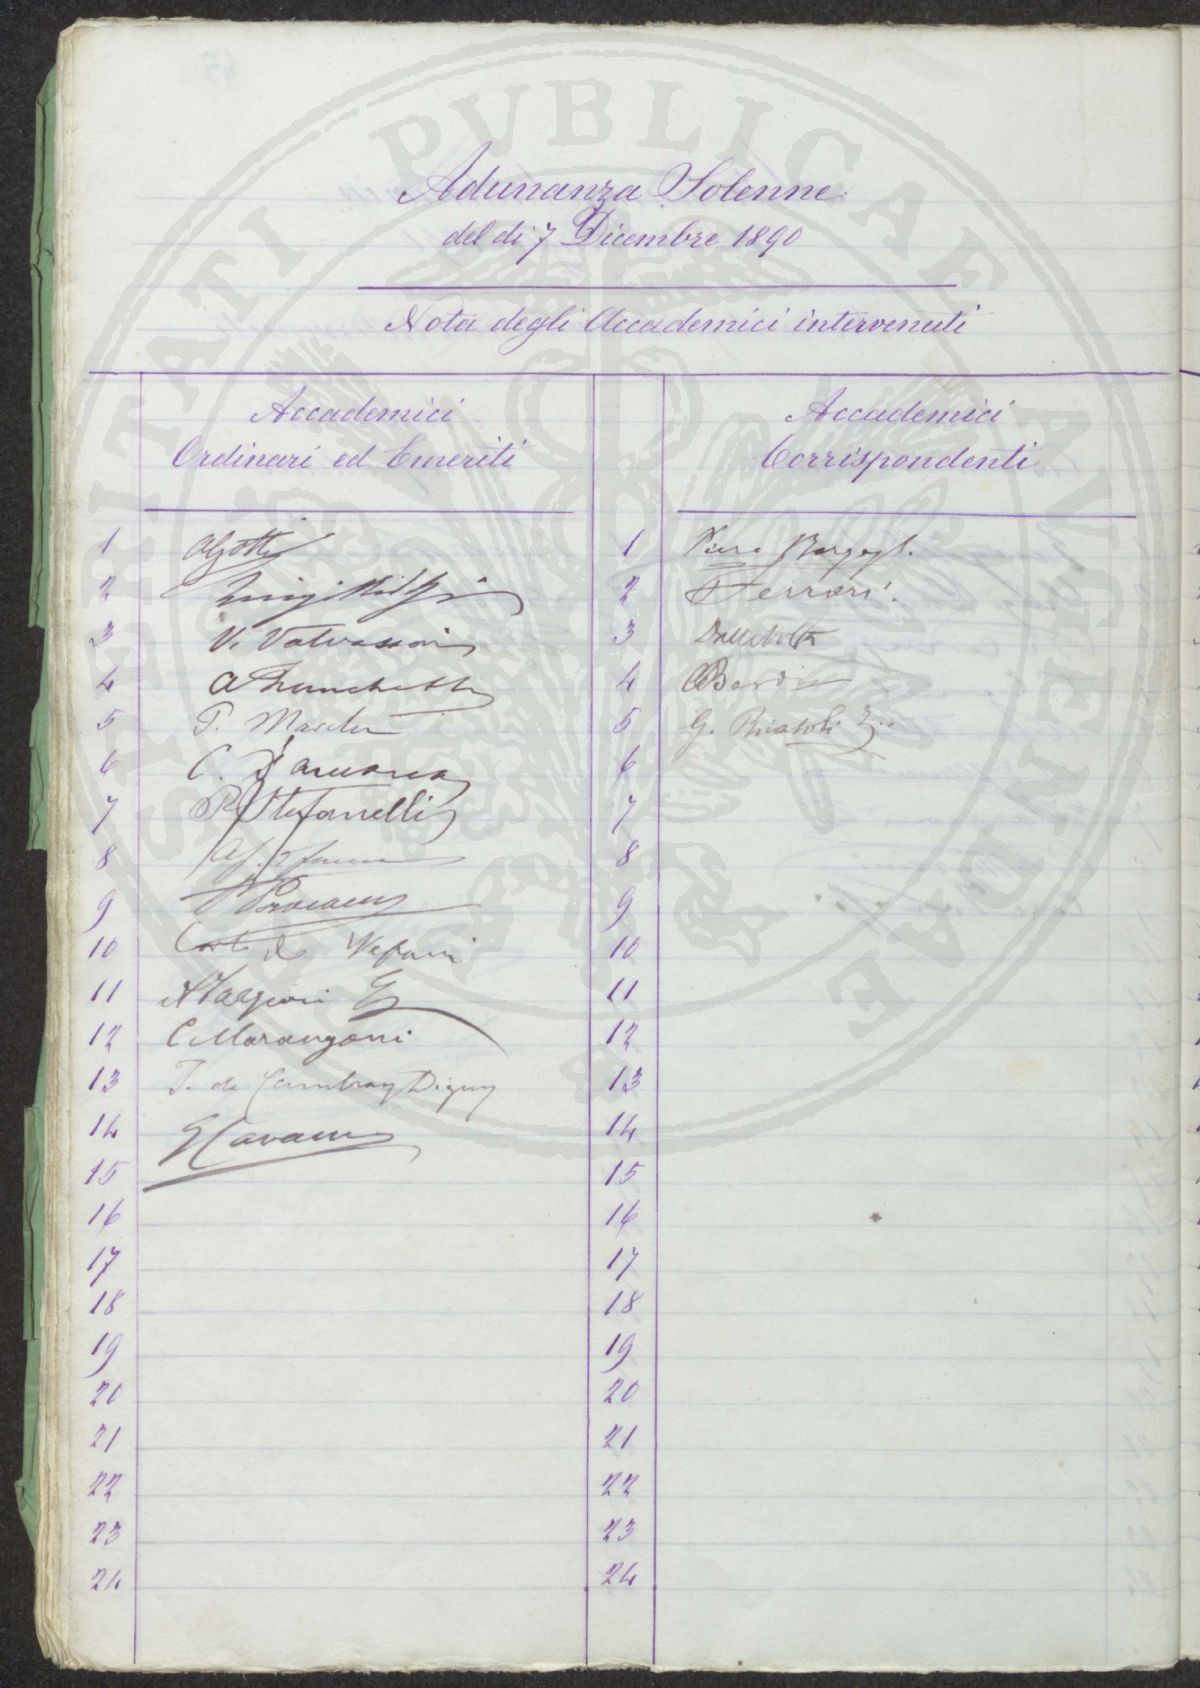 PROSPERITATI PUBLICAE AUGENDAE
Adunanza Solenne
del dì 7 Dicembre 1890
Nota degli Accademici intervenuti
Accademici
Ordinari ed Emeriti
Accademici
Corrispondenti
1
2
3 V. Valvassori
4 A Franchetti
5 P. Marchi
6 C.
7 P. Stefanelli
8
9
10 Carlo De Stefani
11 A Targioni
12 C Marangoni
13 T. de Cambray Digny
14
15
16
17
18
19
20
21
22
23
24
1 Piero Bargagli
2 Ferrari.
3 Dalla Volta
4 Bardi
5 G. Ricasoli
6
7
8
9
10
11
12
13
14
15
16
17
18
19
20
21
22
23
24